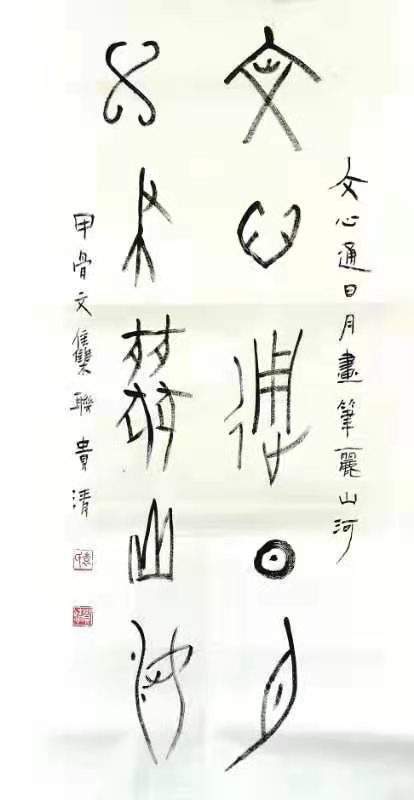 文心通日月畫筆麗山河
文心通日月
畫筆麗山河
甲骨文雧聯貴清